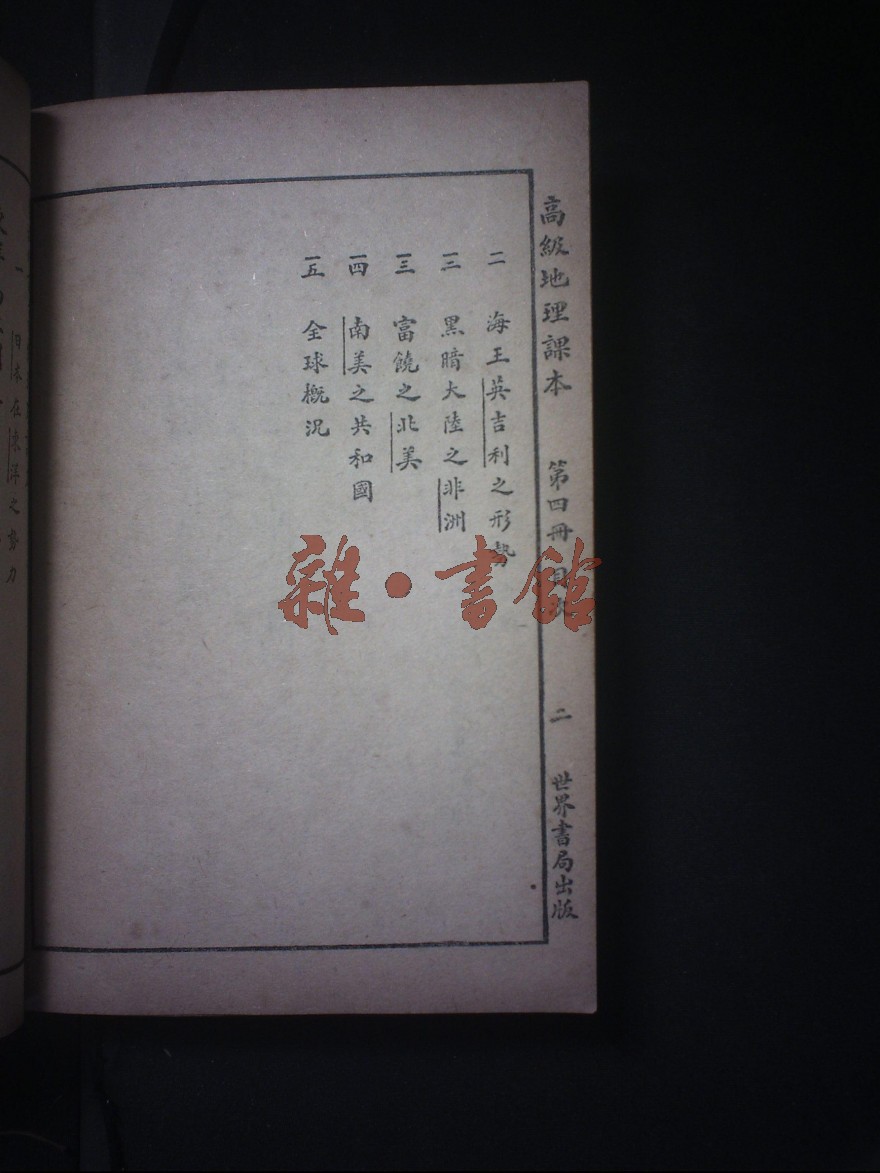 高級地理課本 第四冊 目次 二 世界書局出版
一一 海王英吉利之形勢
一二 黑暗大陸之非洲
一三 富饒之北美
一四 南美之共和國
一五 全球概況
日本在東洋之勢力
雜·書館